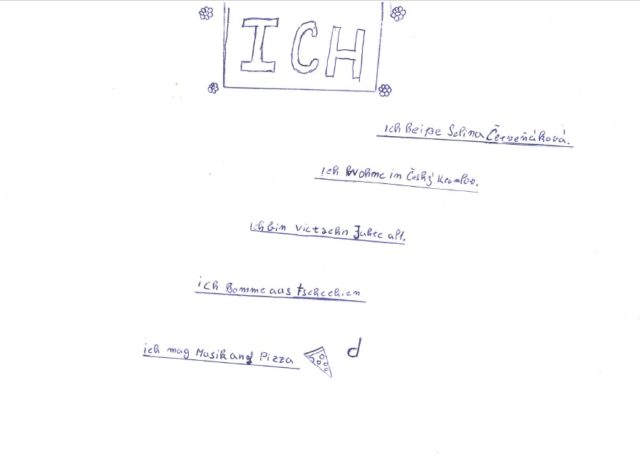 ICH
ich heiße Selina Červeňáková.
ich Wohne in Český Krumlov.
ich bin vierzehn Jahre alt.
ich komme aus tschechien
ich mag Musik and Pizza
d